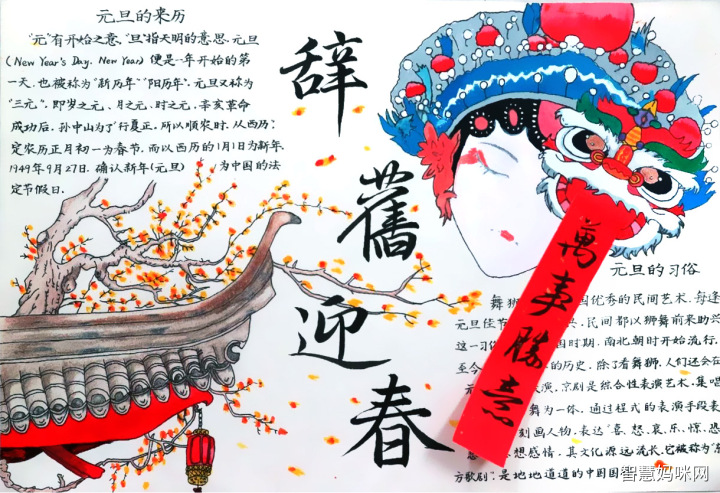 元旦的来历
"元"有开始之意、"旦"指天明的意思.元旦
(New Year's Day, New Year) 便是一年开始的第
一天.也被称为"新历年""阳历年".元旦又称为
"三元".即岁之元、月之元、时之元.辛亥革命
成功后,孙中山为了"行夏正,所以顺农时,从西历:
定农历正月初一为春节.而以西历的1月1日为新年.
1949年9月27日.确认新年(元旦) 为中国的法
定节假日.
辞
舊
迎
春
萬事勝意
元旦的习俗
舞狮 国优秀的民间艺术,每逢
元旦佳节 民间都以狮舞前来助兴
这一习俗 国时期,南北朝时开始流行,
至今 的历史.除了看舞狮,人们还会在
元 演,京剧是综合性表演艺术.集唱
舞为一体.通过程式的表演手段表
刻画人物,表达"喜、怒、哀、乐、惊、恐
想感情.其文化源远流长,它被称为"东
方歌剧".是地地道道的中国国
智慧妈咪网